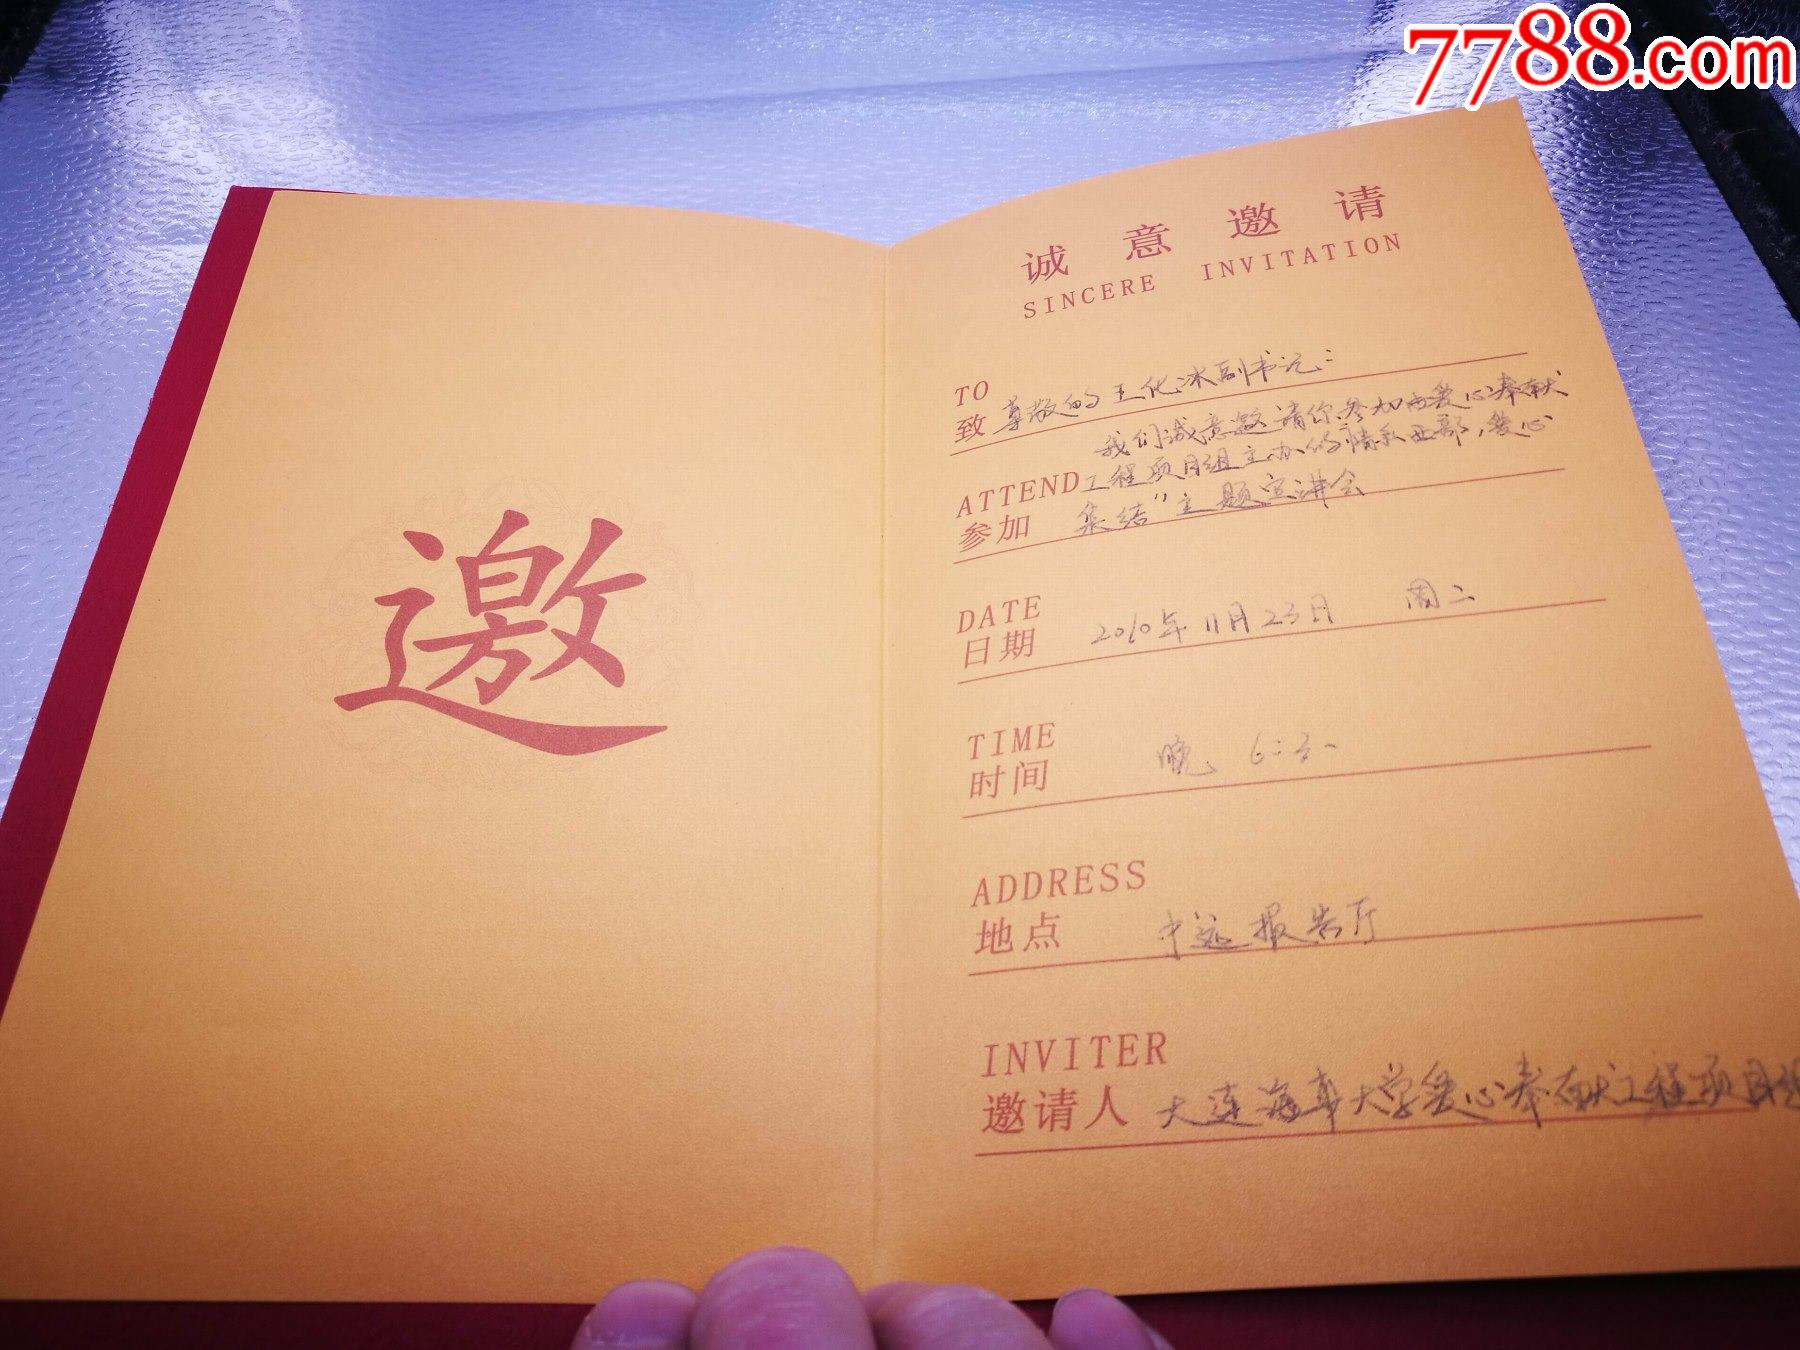 7788.com
邀
诚意邀请
SINCERE INVITATION
TO
致 尊敬的王化冰副书记:
我们诚意邀请你参加由爱心奉献
ATTEND 工程项目组主办的"情系西部,爱心
参加 集结"主题宣讲会
DATE
日期 2010年11月23日 周二
TIME
时间 晚 6:
ADDRESS
地点 中远报告厅
INVITER
邀请人 大连海事大学爱心奉献工程项目组